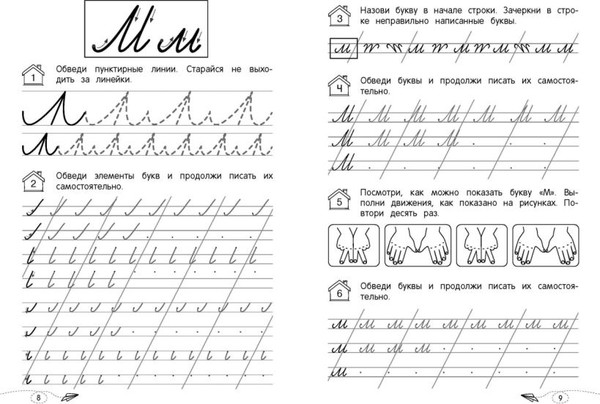 М м
1 Обведи пунктирные линии. Старайся не выхо-
дить за линейки.
2 Обведи элементы букв и продолжи писать их
самостоятельно.
8
3 Назови букву в начале строки. Зачеркни в стро-
ке неправильно написанные буквы.
м
4 Обведи буквы и продолжи писать их самостоя-
тельно.
М М М М М М М
М М М М
М
5 Посмотри, как можно показать букву «М». Вы-
полни движения, как показано на рисунках. По-
втори десять раз.
6 Обведи буквы и продолжи писать их самостоя-
тельно.
м м м м м м м м м
м м м м
м
9